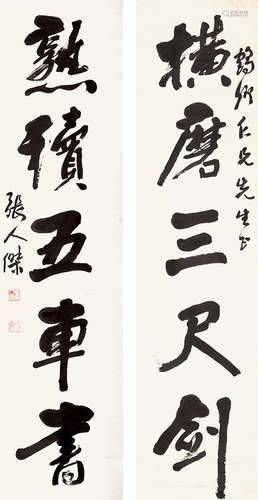 仁兄先生正
横磨三尺劍
熟讀五車書
張人傑